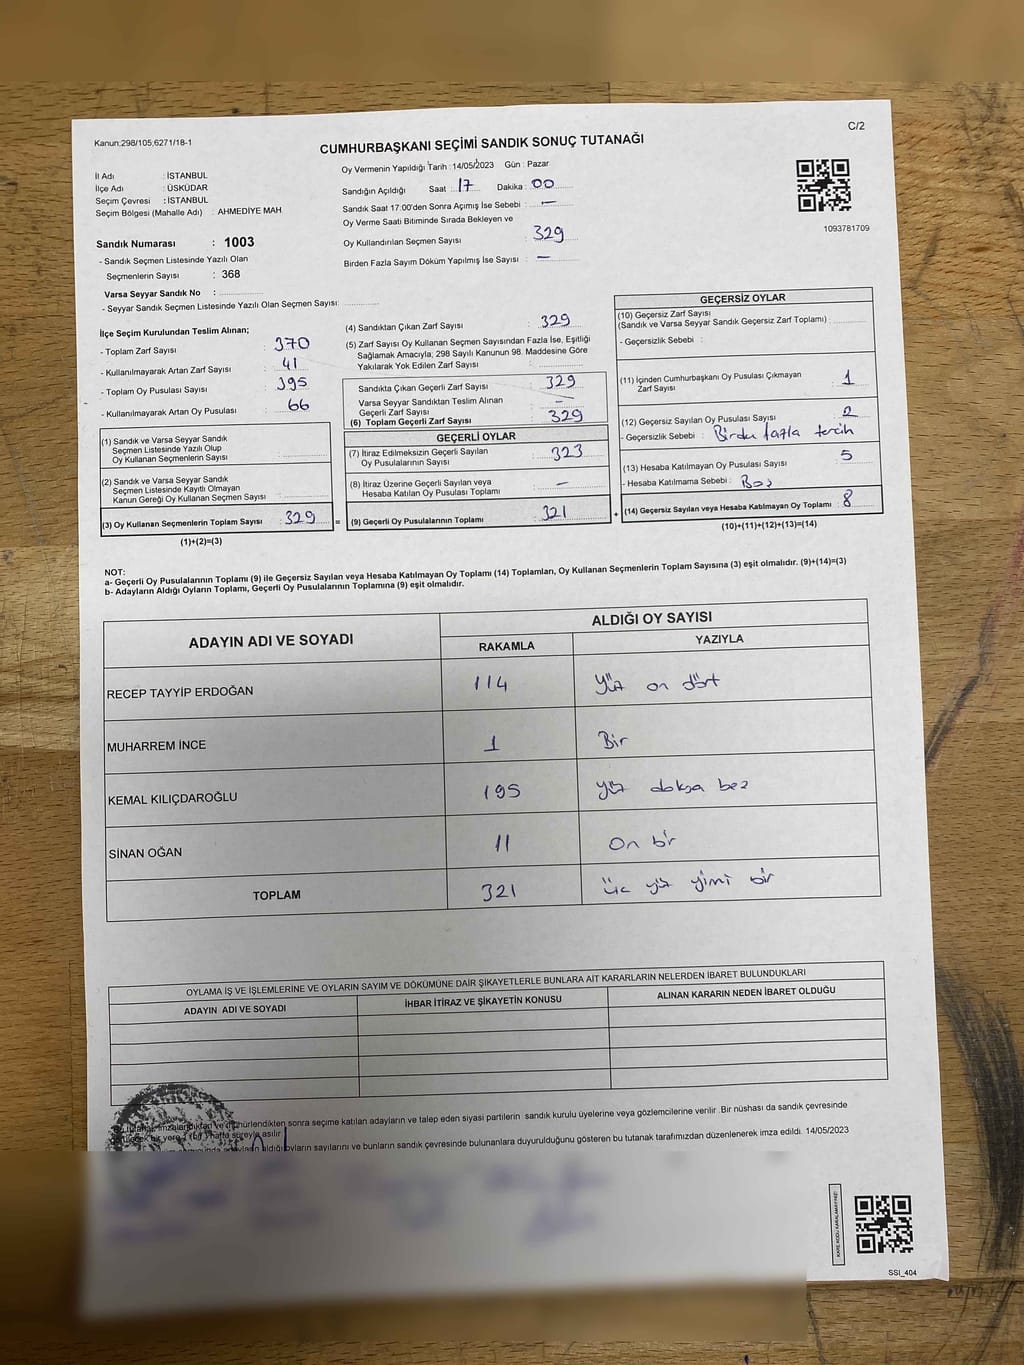 Kanun:298/105,6271/18-1
C/2
CUMHURBAŞKANI SEÇİMİ SANDIK SONUÇ TUTANAĞI
İl Adı : İSTANBUL
İlçe Adı : ÜSKÜDAR
Seçim Çevresi : İSTANBUL
Seçim Bölgesi (Mahalle Adı) : AHMEDİYE MAH.
Sandık Numarası : 1003
- Sandık Seçmen Listesinde Yazılı Olan
Seçmenlerin Sayısı : 368
Varsa Seyyar Sandık No :
- Seyyar Sandık Seçmen Listesinde Yazılı Olan Seçmen Sayısı:
Oy Vermenin Yapıldığı Tarih : 14/05/2023 Gün : Pazar
Sandığın Açıldığı Saat : 17 Dakika : 00
Sandık Saat 17:00'den Sonra Açımış İse Sebebi : —
Oy Verme Saati Bitiminde Sırada Bekleyen ve
Oy Kullandırılan Seçmen Sayısı 329
Birden Fazla Sayım Döküm Yapılmış İse Sayısı : —
1093781709
İlçe Seçim Kurulundan Teslim Alınan;
- Toplam Zarf Sayısı : 370
- Kullanılmayarak Artan Zarf Sayısı : 41
- Toplam Oy Pusulası Sayısı : 395
- Kullanılmayarak Artan Oy Pusulası : 66
(1) Sandık ve Varsa Seyyar Sandık
Seçmen Listesinde Yazılı Olup
Oy Kullanan Seçmenlerin Sayısı :
(2) Sandık ve Varsa Seyyar Sandık
Seçmen Listesinde Kayıtlı Olmayan
Kanun Gereği Oy Kullanan Seçmen Sayısı :
(3) Oy Kullanan Seçmenlerin Toplam Sayısı : 329 =
(1)+(2)=(3)
(4) Sandıktan Çıkan Zarf Sayısı : 329
(5) Zarf Sayısı Oy Kullanan Seçmen Sayısından Fazla İse, Eşitliği
Sağlamak Amacıyla; 298 Sayılı Kanunun 98. Maddesine Göre
Yakılarak Yok Edilen Zarf Sayısı :
Sandıkta Çıkan Geçerli Zarf Sayısı : 329
Varsa Seyyar Sandıktan Teslim Alınan
Geçerli Zarf Sayısı : —
(6) Toplam Geçerli Zarf Sayısı : 329
GEÇERLİ OYLAR
(7) İtiraz Edilmeksizin Geçerli Sayılan
Oy Pusulalarının Sayısı : 323
(8) İtiraz Üzerine Geçerli Sayılan veya
Hesaba Katılan Oy Pusulası Toplamı : —
(9) Geçerli Oy Pusulalarının Toplamı : 321 +
GEÇERSİZ OYLAR
(10) Geçersiz Zarf Sayısı
(Sandık ve Varsa Seyyar Sandık Geçersiz Zarf Toplamı) :
- Geçersizlik Sebebi :
(11) İçinden Cumhurbaşkanı Oy Pusulası Çıkmayan
Zarf Sayısı : 1
(12) Geçersiz Sayılan Oy Pusulası Sayısı : 2
- Geçersizlik Sebebi : Birden fazla tercih
(13) Hesaba Katılmayan Oy Pusulası Sayısı : 5
- Hesaba Katılmama Sebebi : Boş
(14) Geçersiz Sayılan veya Hesaba Katılmayan Oy Toplamı : 8
(10)+(11)+(12)+(13)=(14)
NOT:
a- Geçerli Oy Pusulalarının Toplamı (9) ile Geçersiz Sayılan veya Hesaba Katılmayan Oy Toplamı (14) Toplamları, Oy Kullanan Seçmenlerin Toplam Sayısına (3) eşit olmalıdır. (9)+(14)=(3)
b- Adayların Aldığı Oyların Toplamı, Geçerli Oy Pusulalarının Toplamına (9) eşit olmalıdır.
ADAYIN ADI VE SOYADI
ALDIĞI OY SAYISI
RAKAMLA YAZIYLA
RECEP TAYYİP ERDOĞAN 114 Yüz on dört
MUHARREM İNCE 1 Bir
KEMAL KILIÇDAROĞLU 195 yüz doksa beş
SİNAN OĞAN 11 On bir
TOPLAM 321 üç yüz yirmi bir
OYLAMA İŞ VE İŞLEMLERİNE VE OYLARIN SAYIM VE DÖKÜMÜNE DAİR ŞİKAYETLERLE BUNLARA AİT KARARLARIN NELERDEN İBARET BULUNDUKLARI
ADAYIN ADI VE SOYADI İHBAR İTİRAZ VE ŞİKAYETİN KONUSU ALINAN KARARIN NEDEN İBARET OLDUĞU
tutanak, imzalandıktan ve mühürlendikten sonra seçime katılan adayların ve talep eden siyasi partilerin sandık kurulu üyelerine veya gözlemcilerine verilir .Bir nüshası da sandık çevresinde
bir yere 1 (bir) hafta süreyle asılır.
aldığı oyların sayılarını ve bunların sandık çevresinde bulunanlara duyurulduğunu gösteren bu tutanak tarafımızdan düzenlenerek imza edildi. 14/05/2023
KARE KODU KARALAMAYINIZ!
SSI_404